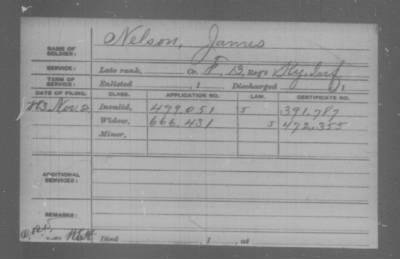 Nelson, James
NAME OF SOLDIER:
SERVICE: Late rank, Co. F, 13, Reg't Ky. Inf.
TERM OF SERVICE: Enlisted , 1 Discharged , 1
DATE OF FILING. CLASS. APPLICATION NO. LAW. CERTIFICATE NO.
1883 Nov. 2 Invalid, 499.051 5 391,787
Widow, 666.431 5 472,355
Minor,
ADDITIONAL SERVICES:
REMARKS:
Died , 1 , at